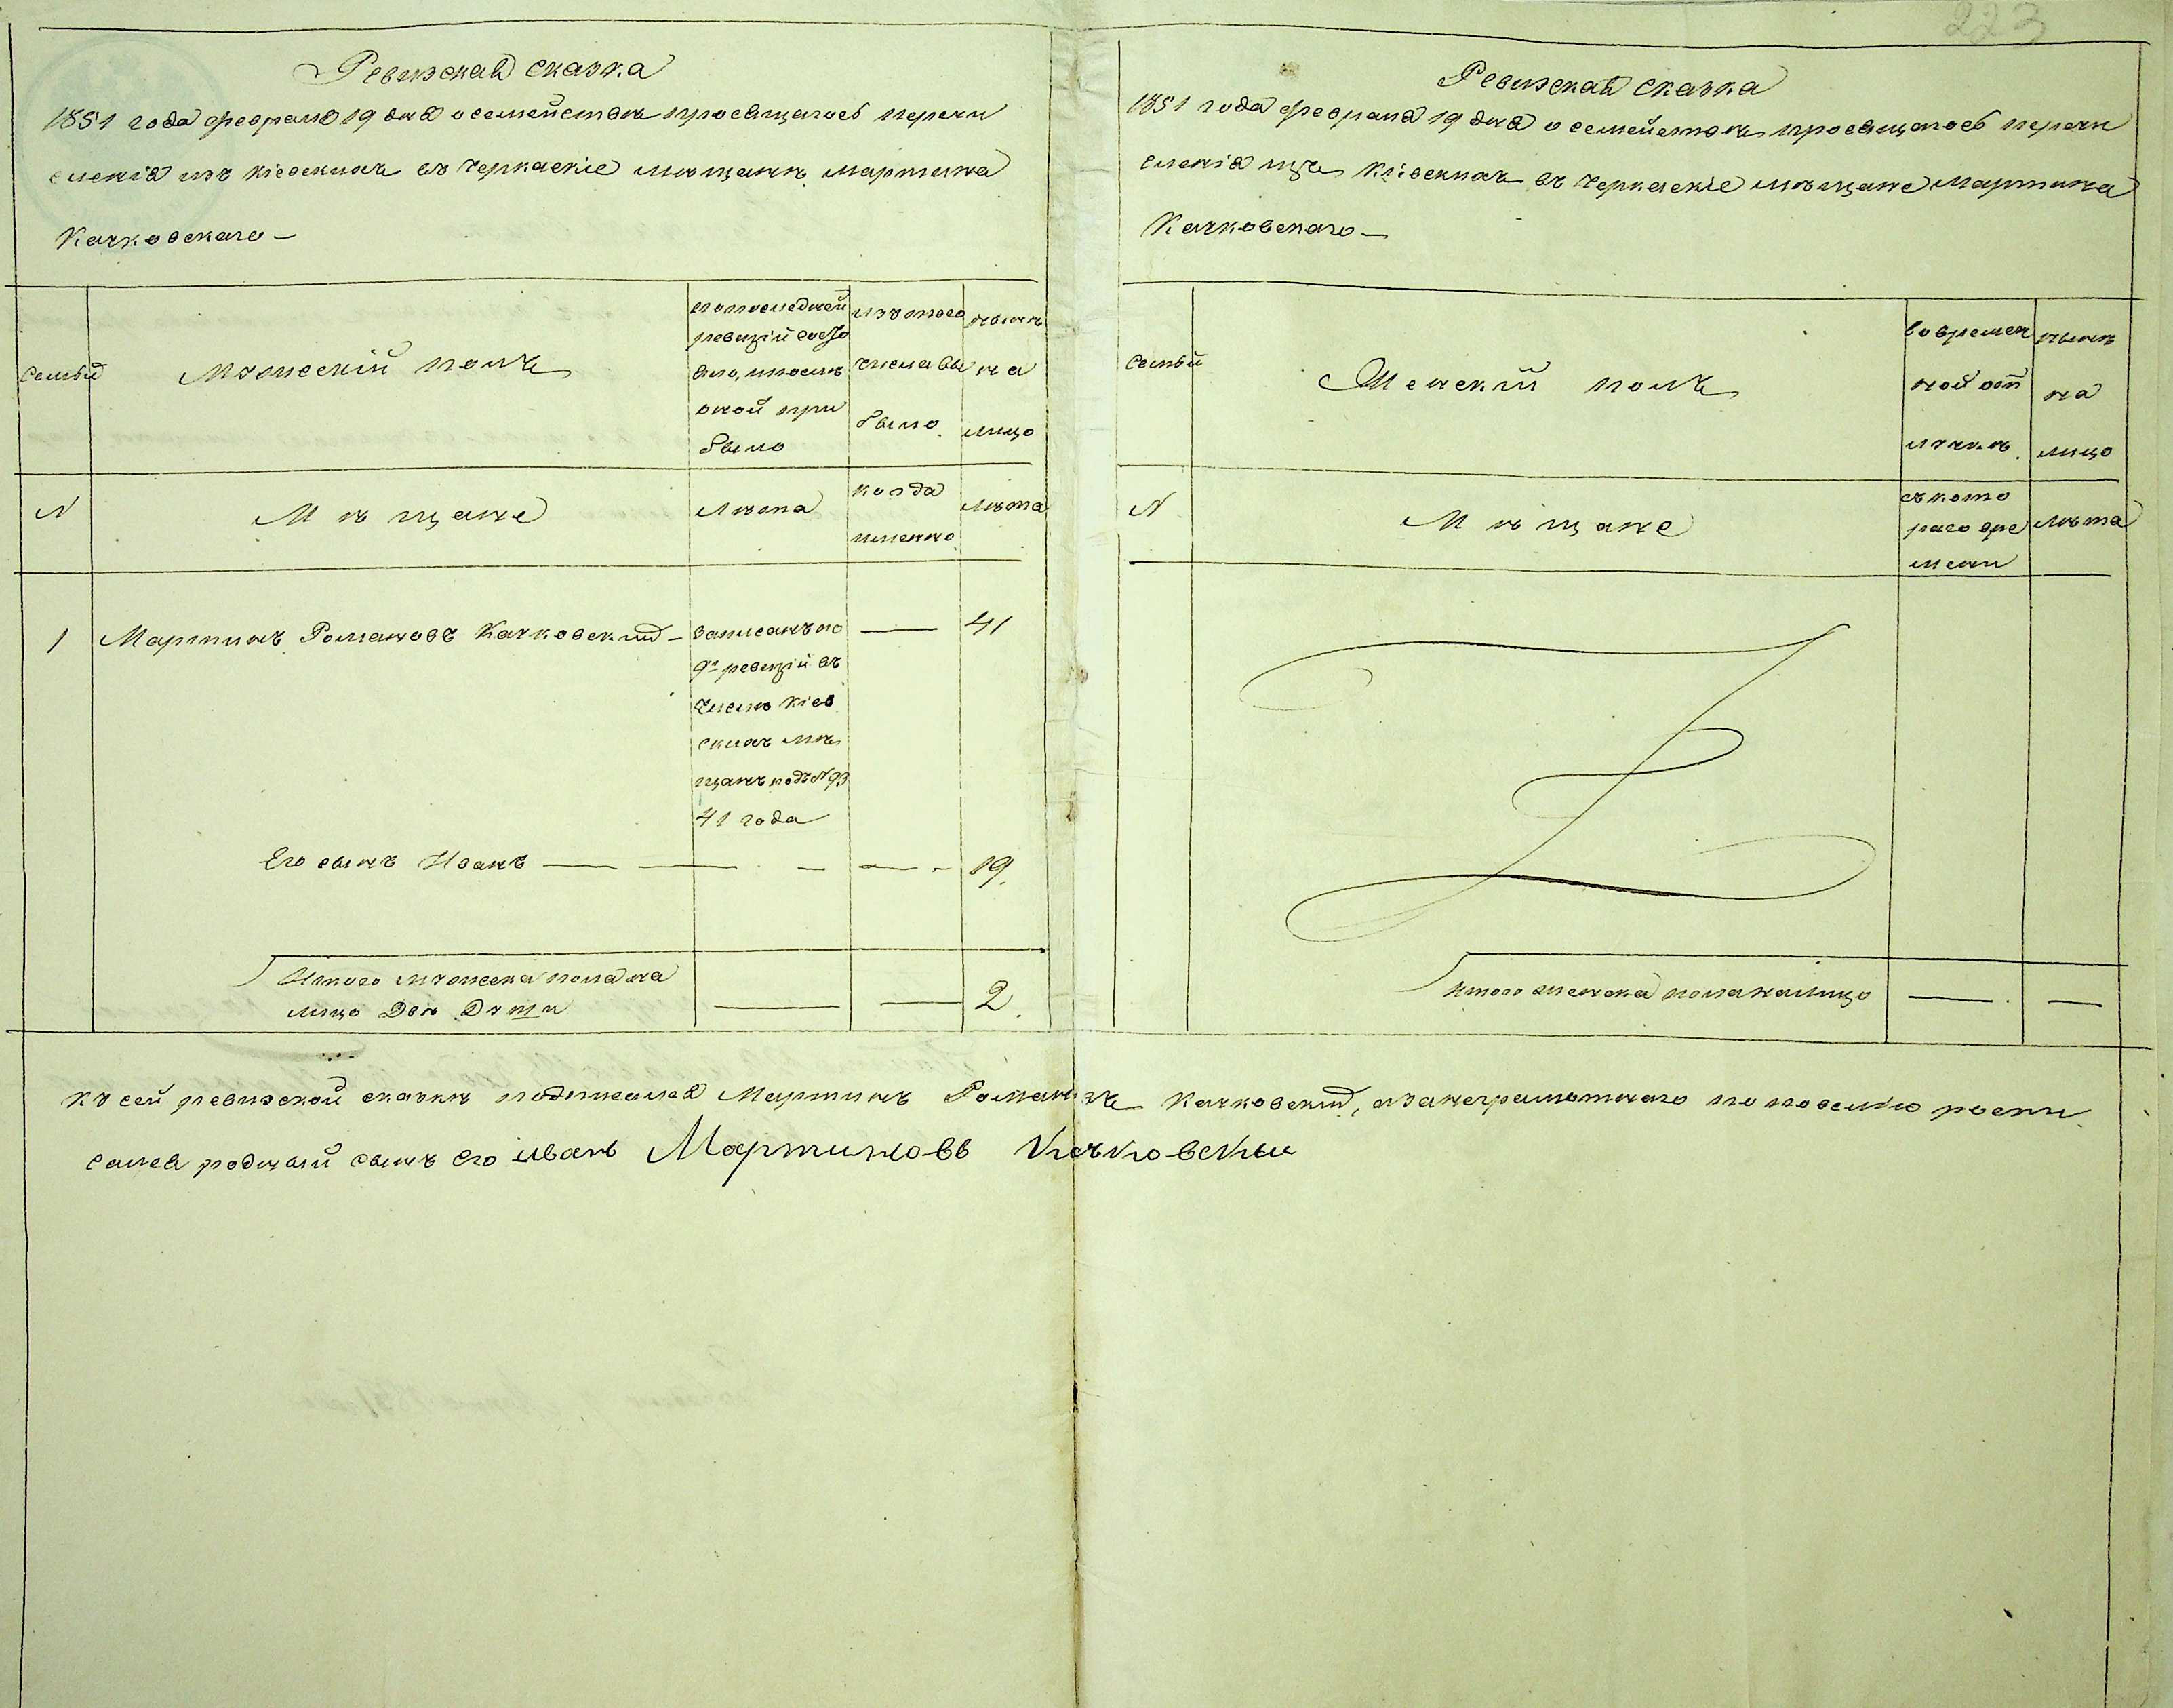 223
Ревизская сказка
1851 года февраля 19 дня о семействѣ просящагось перечи
сленія изъ кіевскихъ въ черкаскіе мѣщанѣ мартина
Качковскаго —
Семьи
Мужескій полъ
по последней
ревизіи состо
яло, и после
оной при
было
изъ того
числа вы
было
нынѣ
на
лицо
N
Мѣщане
Лѣта
когда
именно
лѣта
1
Мартинъ Романовъ Качковский —
записанъ по
9й ревизіи въ
числѣ кіев
скихъ мѣ
щанъ подъ N 93
41 года
—
41
Его сынъ Иванъ — — — —
19.
Итого мужеска пола на
лицо Двѣ Души
—
—
2.
Ревизская сказка
1851 года февраля 19 дня о семействѣ просящагось перечи
сленія изъ кіевскихъ въ черкаскіе мѣщане мартина
Качковскаго —
семьи
Женскій полъ
во времен
ной от
лучкѣ.
нынѣ
на
лицо
N
Мѣщане
съ кото
раго вре
мени
лѣта
итого женска пола налицо
—
—
къ сей ревизской сказкѣ подписался Мартинъ Романовъ Качковский, а за неграмотнаго по повелѣю роспи
сался родный сынъ его иванъ Мартиновъ Качковскы